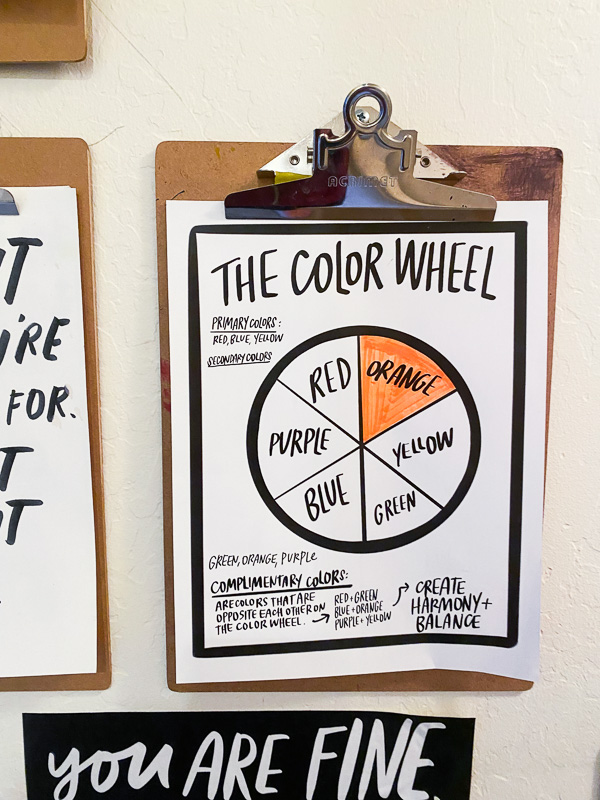 ACRIMET
THE COLOR WHEEL
PRIMARY COLORS:
RED, BLUE, YELLOW
SECONDARY COLORS
RED
ORANGE
PURPLE
YELLOW
BLUE
GREEN
GREEN, ORANGE, PURPLE
COMPLIMENTARY COLORS:
ARE COLORS THAT ARE
OPPOSITE EACH OTHER ON
THE COLOR WHEEL. →
RED + GREEN
BLUE + ORANGE
PURPLE + YELLOW
CREATE
HARMONY +
BALANCE
FOR.
you ARE FINE.